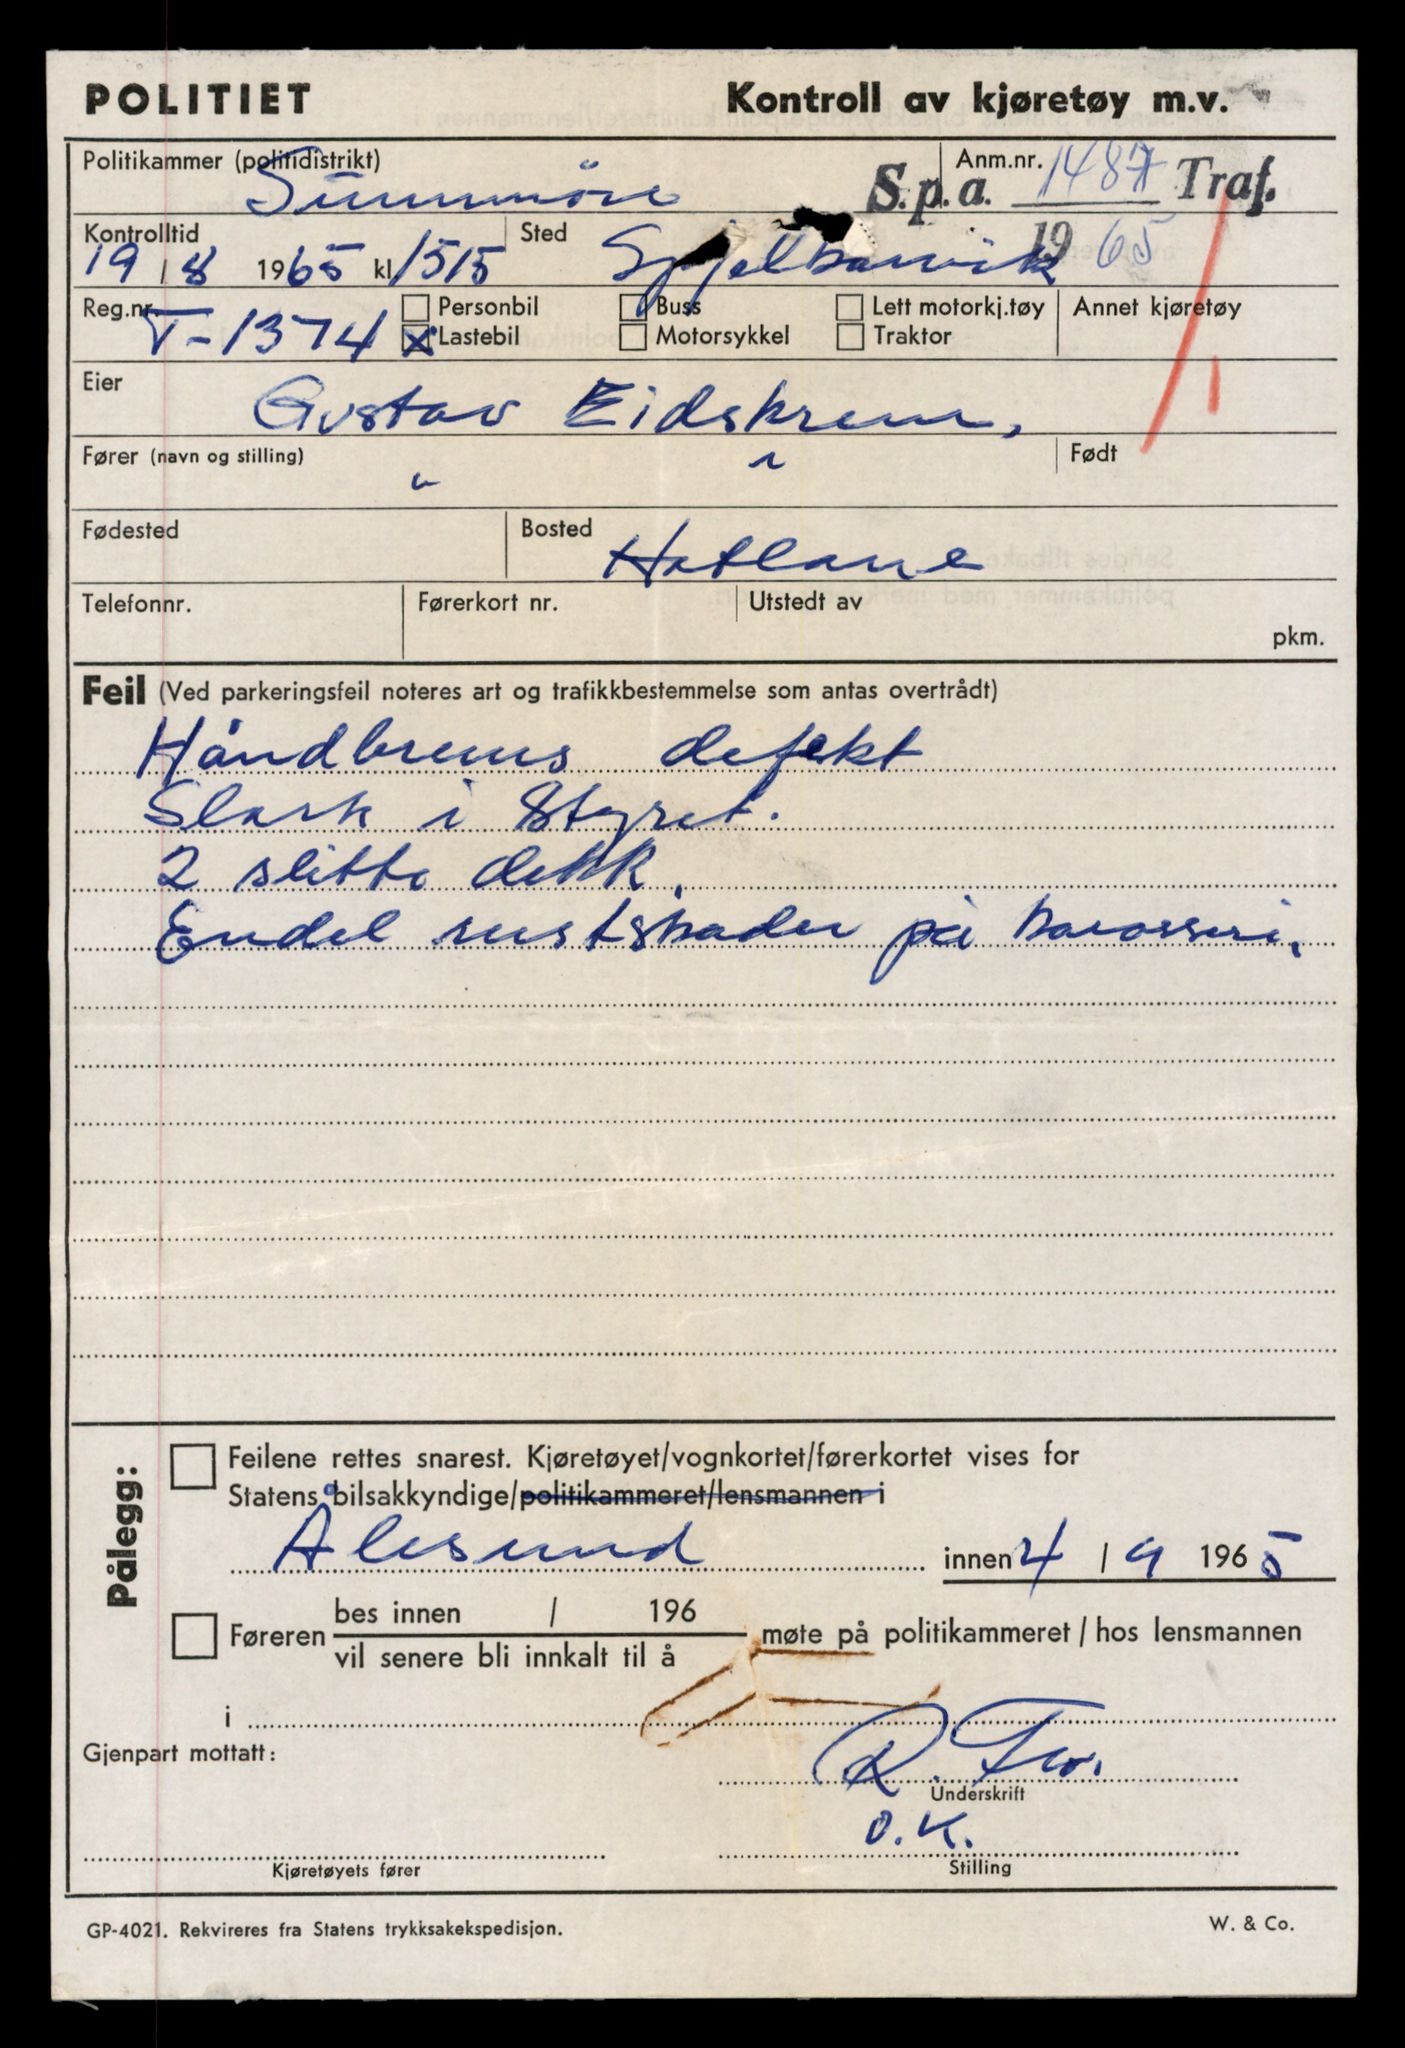 POLITIET Kontroll av kjøretøy m.v.
Politikammer (politidistrikt) Anm.nr.
Sunnmöre S.p.a. 1487 Traf.
Kontrolltid Sted 1965
19/8 1965 kl 1515
Reg.nr. T-1374 Personbil Buss Lett motorkj.tøy Annet kjøretøy
x Lastebil Motorsykkel Traktor
Eier
Gustav Eidskrem,
Fører (navn og stilling) Født
" "
Fødested Bosted
Hatlane
Telefonnr. Førerkort nr. Utstedt av
pkm.
Feil (Ved parkeringsfeil noteres art og trafikkbestemmelse som antas overtrådt)
Håndbrems defekt
Slark i Styret.
2 slitte dekk.
Endel rustskader på karosseri.
Pålegg:
Feilene rettes snarest. Kjøretøyet/vognkortet/førerkortet vises for
Statens bilsakkyndige/politikammeret/lensmannen i
Ålesund innen 4/9 1965
bes innen / 196
Føreren møte på politikammeret / hos lensmannen
vil senere bli innkalt til å
i
Gjenpart mottatt:
R.
Underskrift
O.K.
Kjøretøyets fører Stilling
GP-4021. Rekvireres fra Statens trykksakekspedisjon. W. & Co.